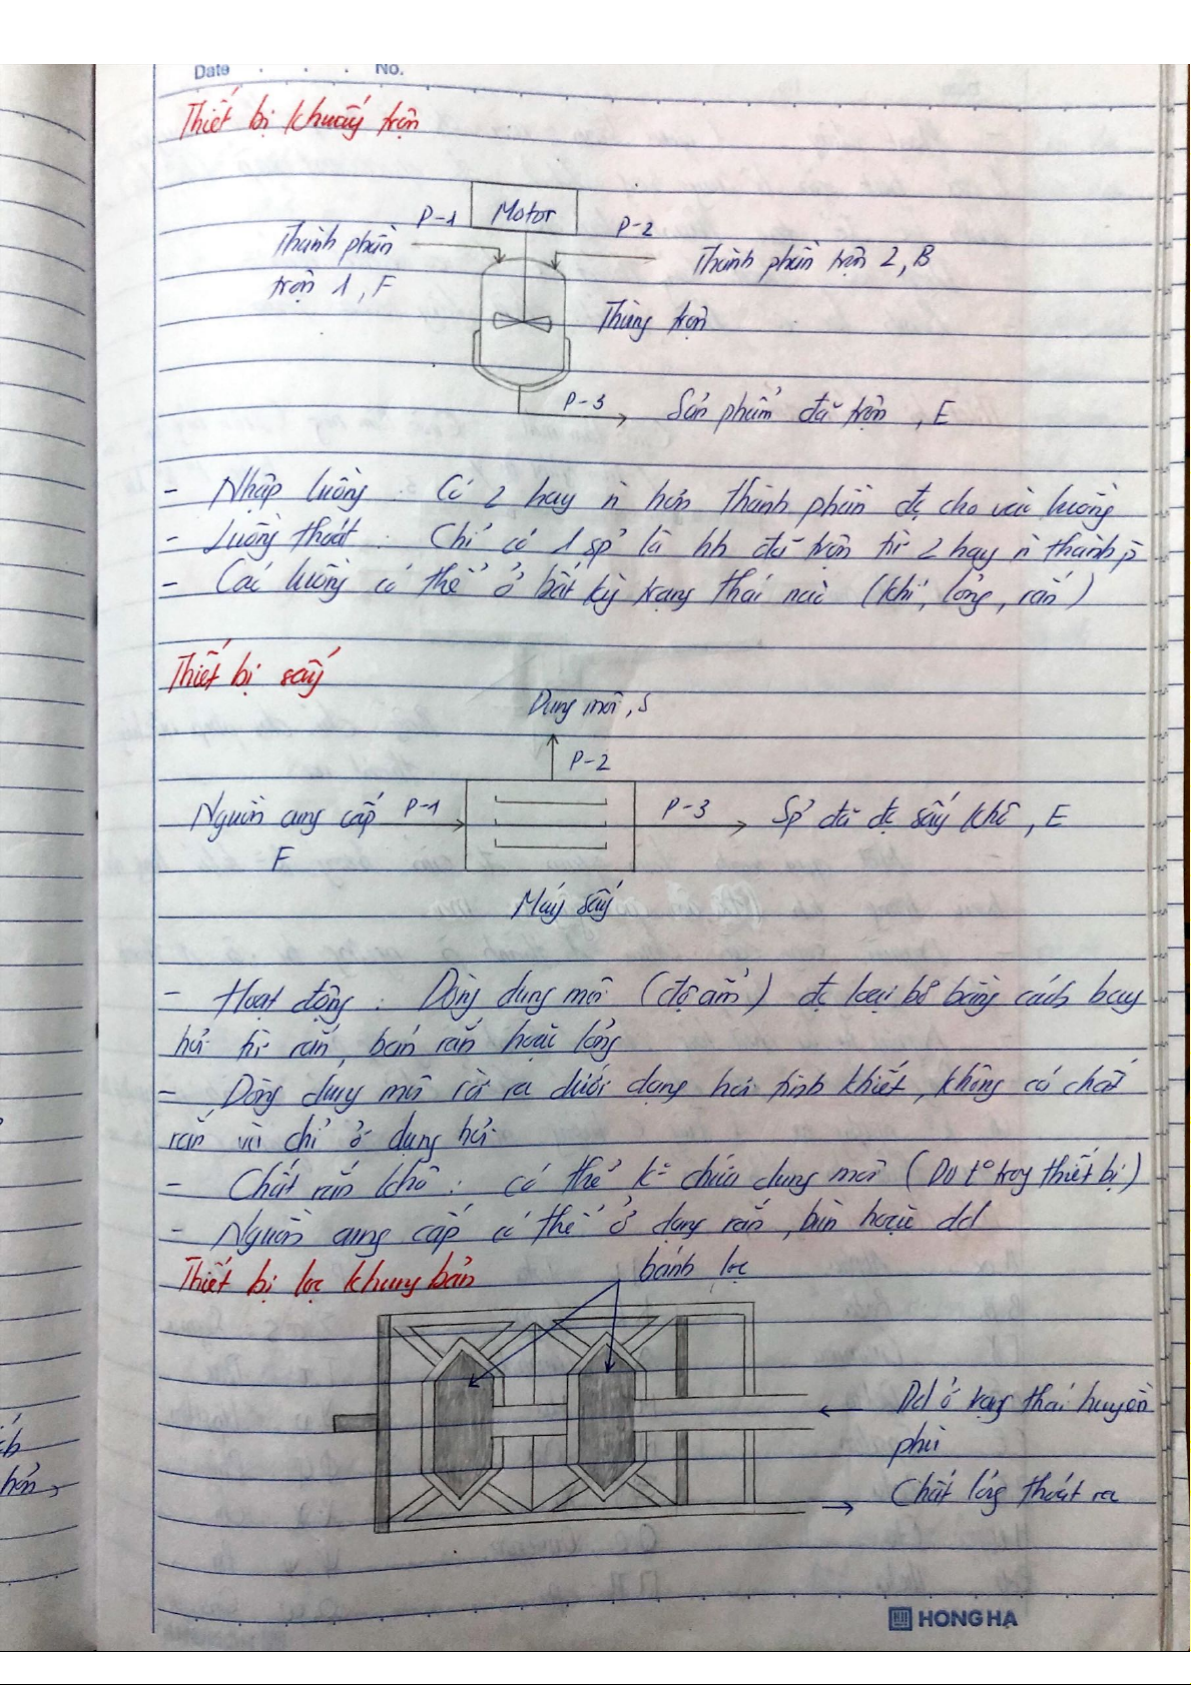 Date . . . No.
Thiết bị khuấy trộn
P-1 Motor P-2
Thành phần Thành phần trộn 2, B
trộn 1, F
Thùng trộn
P-3 Sản phẩm đã trộn, E
- Nhập luồng: Có 2 hay n hơn thành phần đc cho vào luồng
- Luồng thoát: Chỉ có 1 sp' là hh đã trộn từ 2 hay n thành p
- Các luồng có thể ở bất kỳ trạng thái nào (khí, lỏng, rắn)
Thiết bị sấy
Dung môi, S
P-2
Nguồn cung cấp P-1 P-3 Sp' đã đc sấy khô, E
F
Máy sấy
- Hoạt động: Dòng dung môi (độ ẩm) đc loại bỏ bằng cách bay
hơi từ rắn, bán rắn hoặc lỏng
- Dòng dung môi rời ra dưới dạng hơi tinh khiết, không có chất
rắn và chỉ ở dạng hơi
- Chất rắn khô: có thể k chứa dung môi (Do t° trong thiết bị)
- Nguồn cung cấp có thể ở dạng rắn, bùn hoặc dd
Thiết bị lọc khung bản bánh lọc
Dd ở trạng thái huyền
phù
Chất lỏng thoát ra
HONG HA